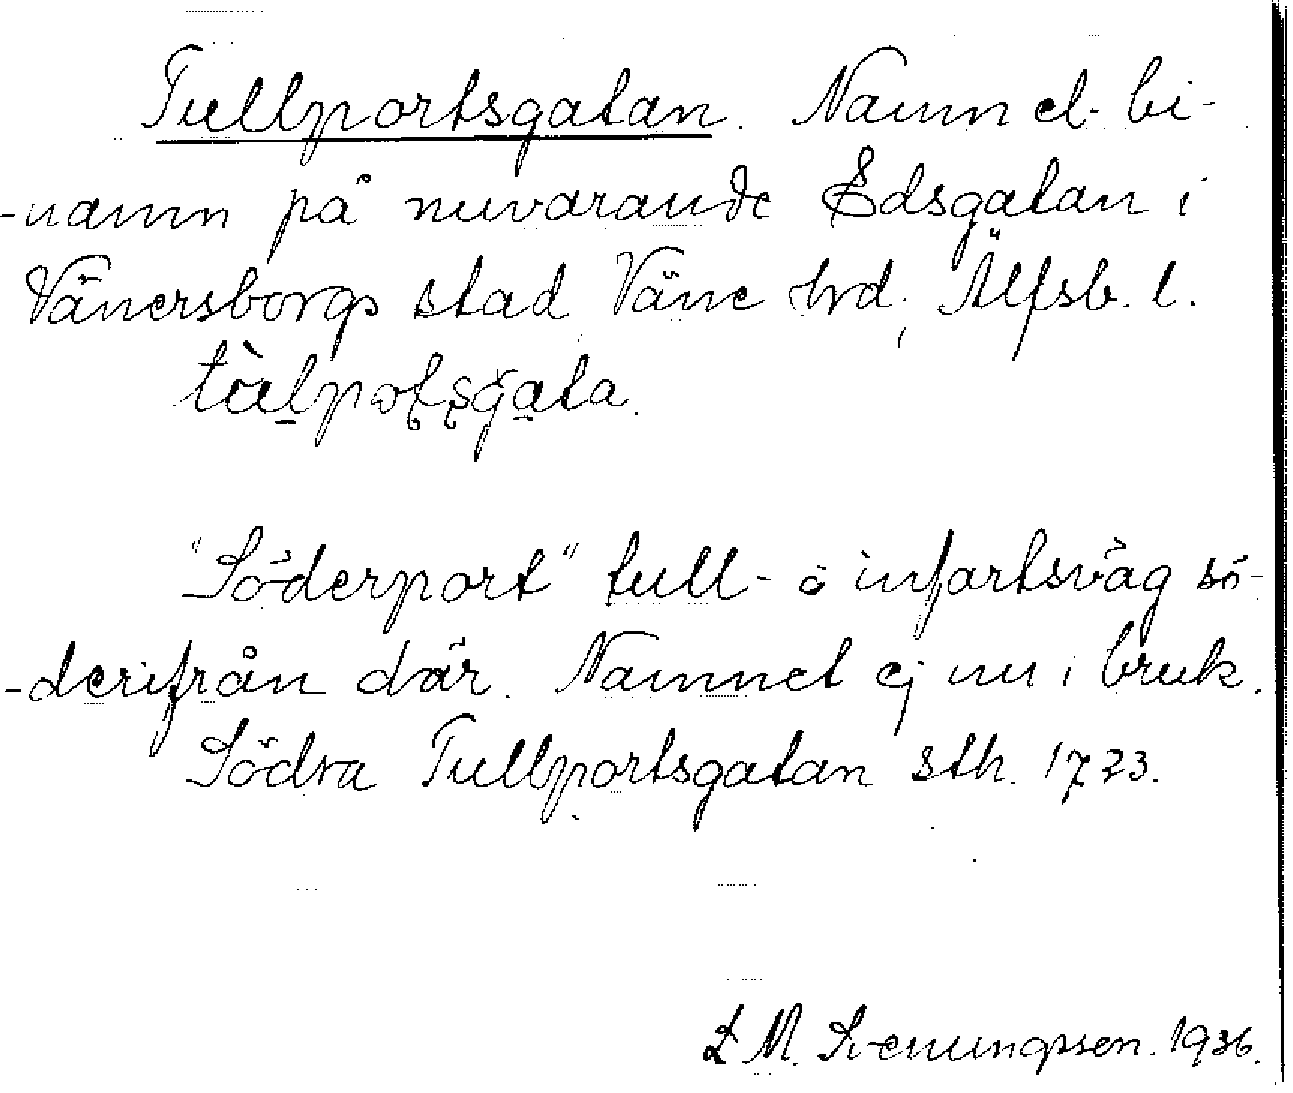 Tullportsgatan. Namnet bi-
-namn på nuvarande Edsgatan i
Vänersborgs stad Väne hrd, Älfsb. l.
"Söderport" tull- o infartsväg sö-
-derifrån där. Namnet ej nu i bruk.
Södra Tullportsgatan sth. 1723.
L M. Svenungsson. 1936.